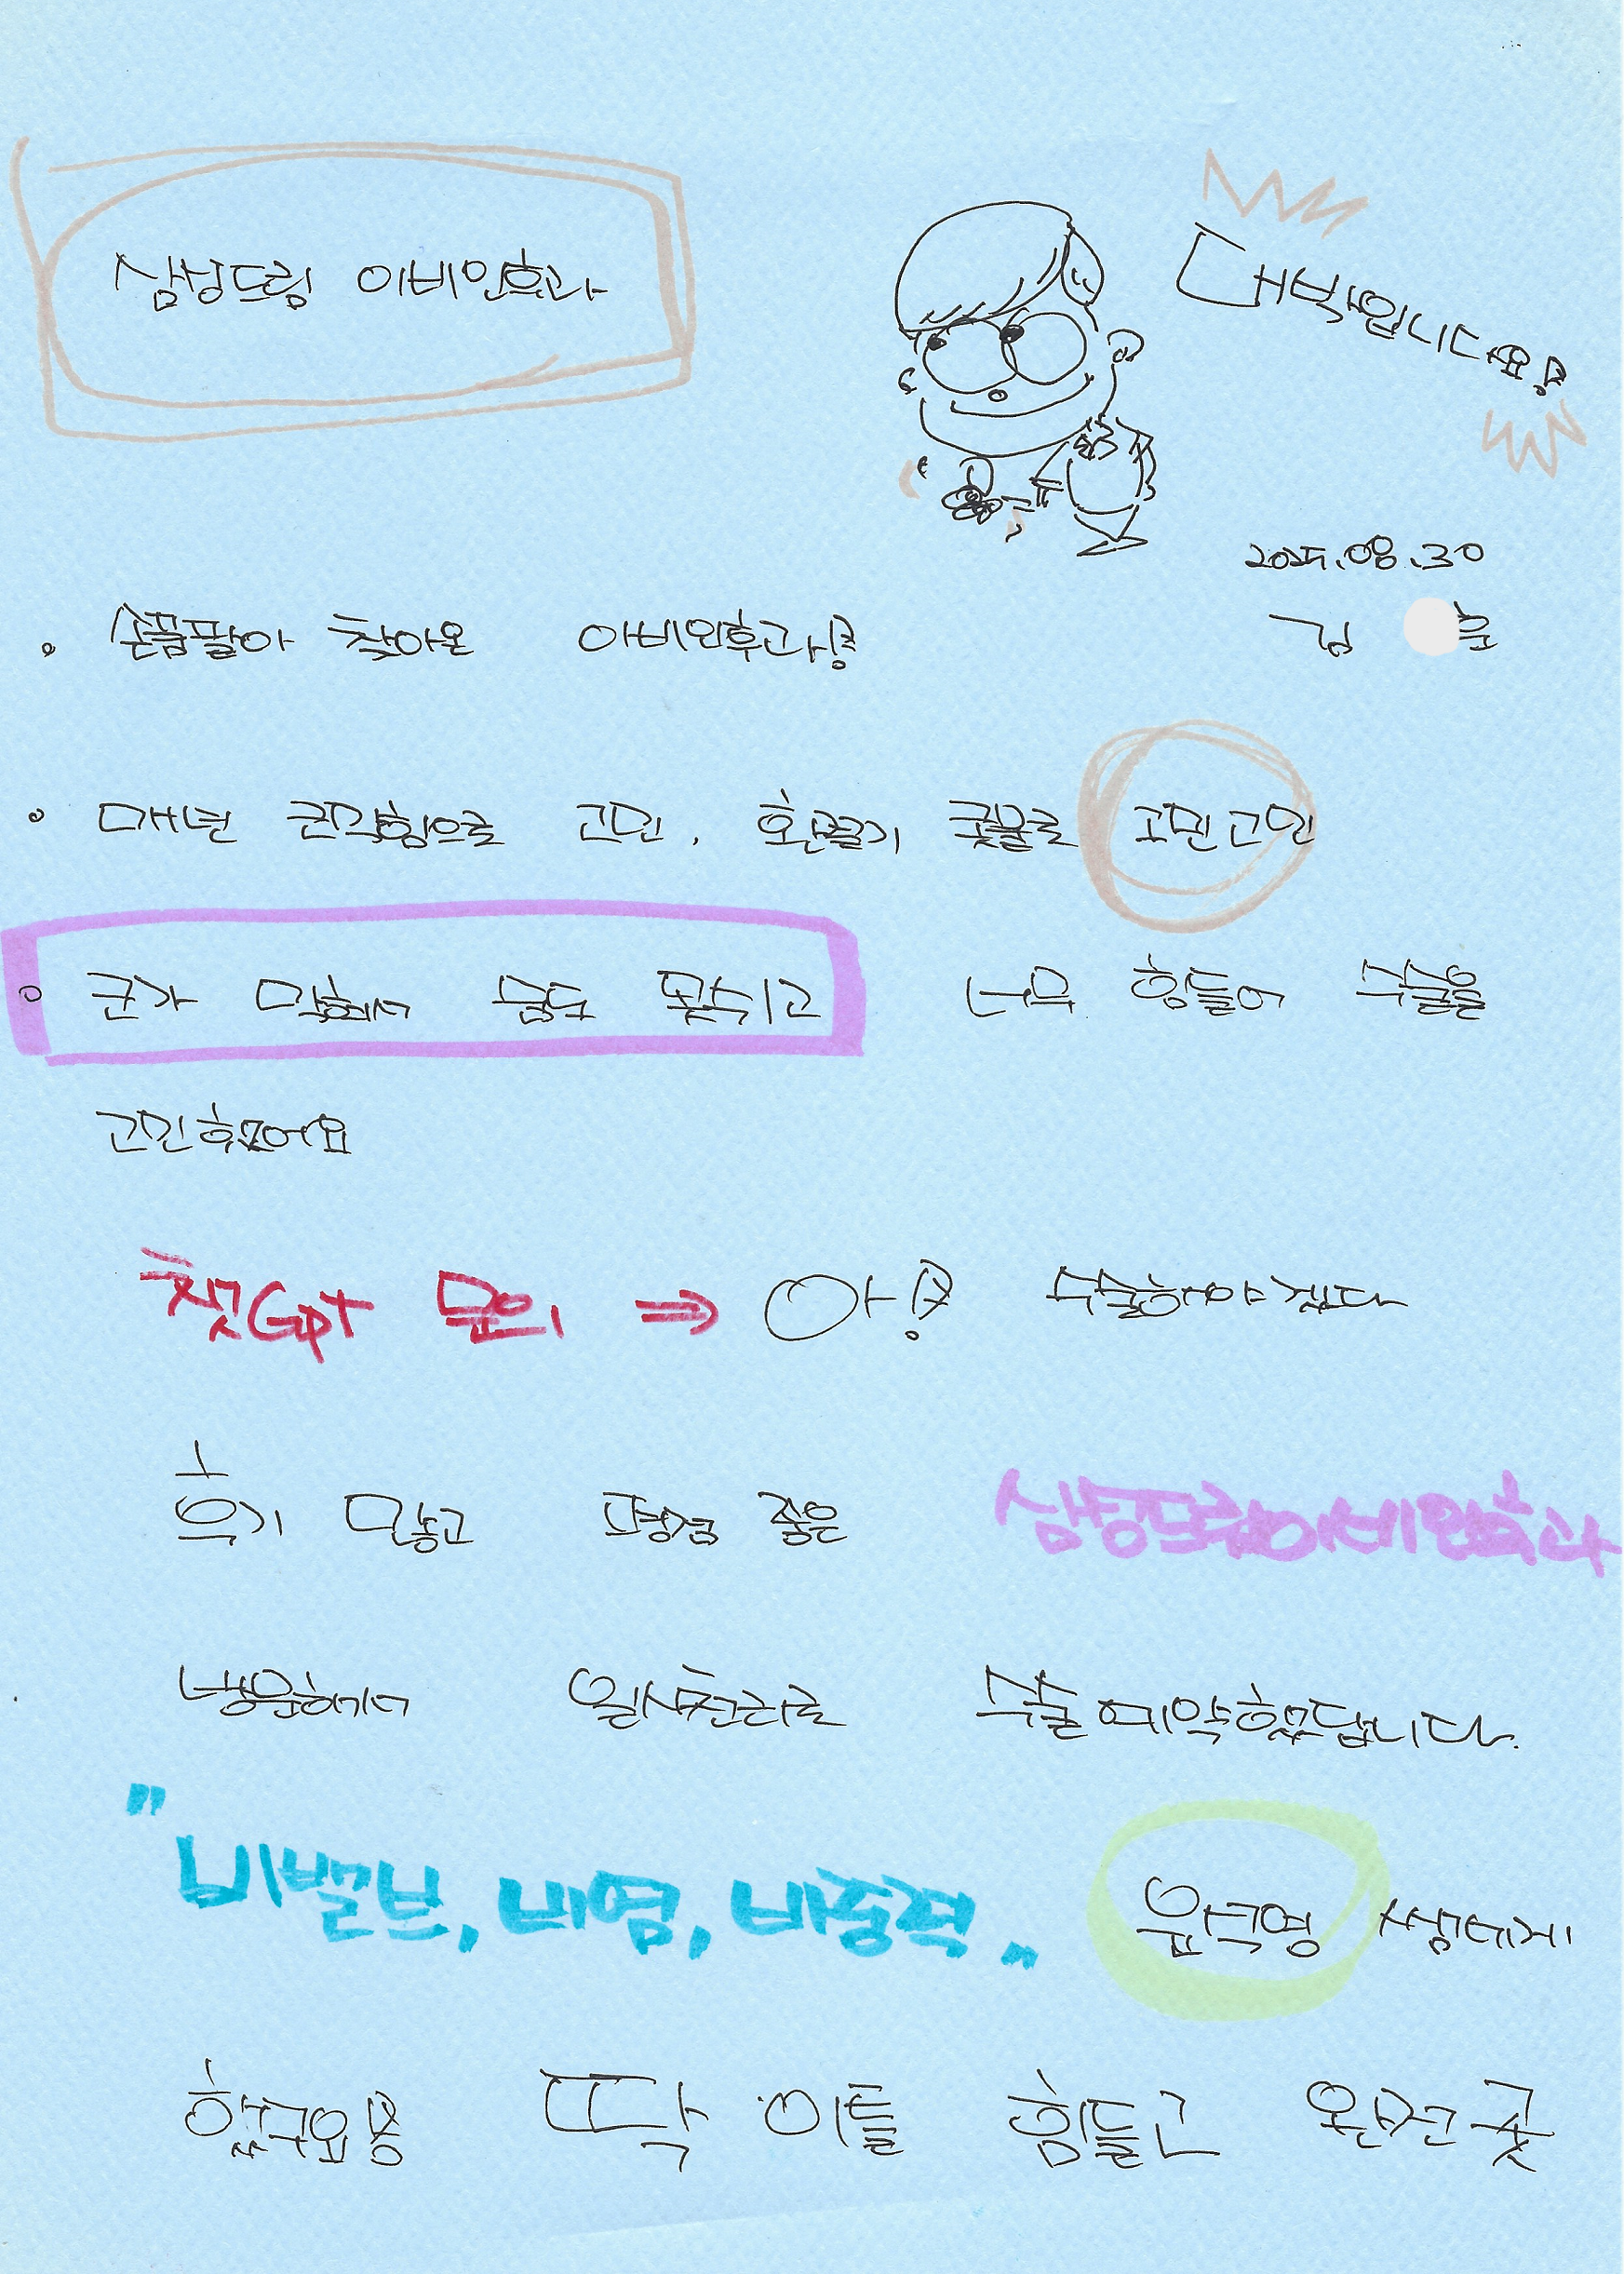 삼성드림 이비인후과
대박입니다요!
2025.08.30
김 준
손품팔아 찾아온 이비인후과!
매년 코막힘으로 고민, 환절기 콧물로 고민고민
코가 막혀서 숨도 못쉬고 너무 힘들어 수술을
고민했어요
챗GPT 문의 ⇒ 아! 수술해야겠다
후기 많고 평점 좋은 삼성드림이비인후과
병원하게서 일사천리로 수술예약했답니다.
"비밸브, 비염, 비중격" 윤석영 쌤에게
했구요 딱 이틀 힘들고 완전 굿